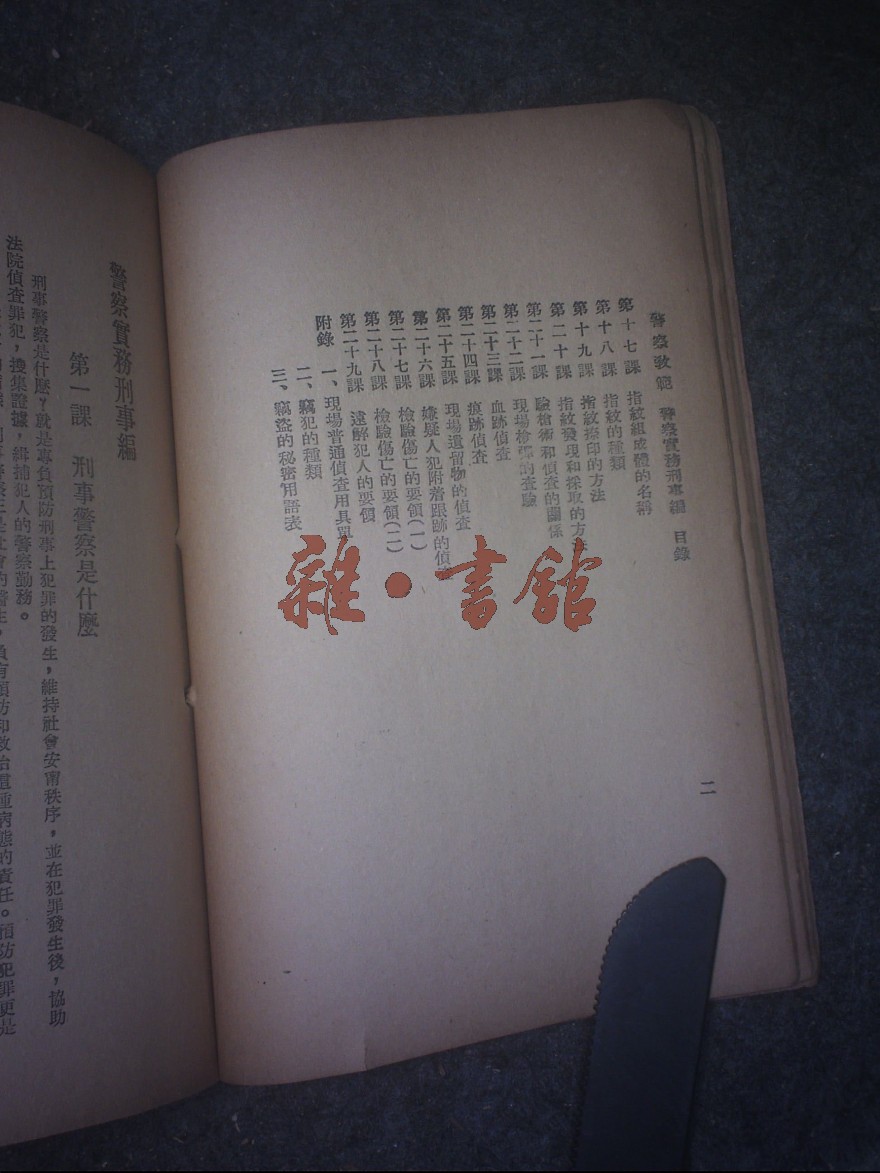 警察教範 警察實務刑事編 目錄
第十七課 指紋組成體的名稱
第十八課 指紋的種類
第十九課 指紋捺印的方法
第二十課 指紋發現和採取的方法
第二十一課 驗槍術和偵查的關係
第二十二課 現場槍彈的查驗
第二十三課 血跡偵查
第二十四課 痕跡偵查
第二十五課 現場遺留物的偵查
第二十六課 嫌疑人犯附着跟跡的偵
第二十七課 檢驗傷亡的要領(一)
第二十八課 檢驗傷亡的要領(二)
第二十九課 遠解犯人的要領
附錄 一、現場普通偵查用具單
二、竊犯的種類
三、竊盜的秘密用語表
二
雜·書館
警察實務刑事編
第一課 刑事警察是什麼
刑事警察是什麼?就是專負預防刑事上犯罪的發生,維持社會安甯秩序,並在犯罪發生後,協助
法院偵查罪犯,搜集證據,緝捕犯人的警察勤務。